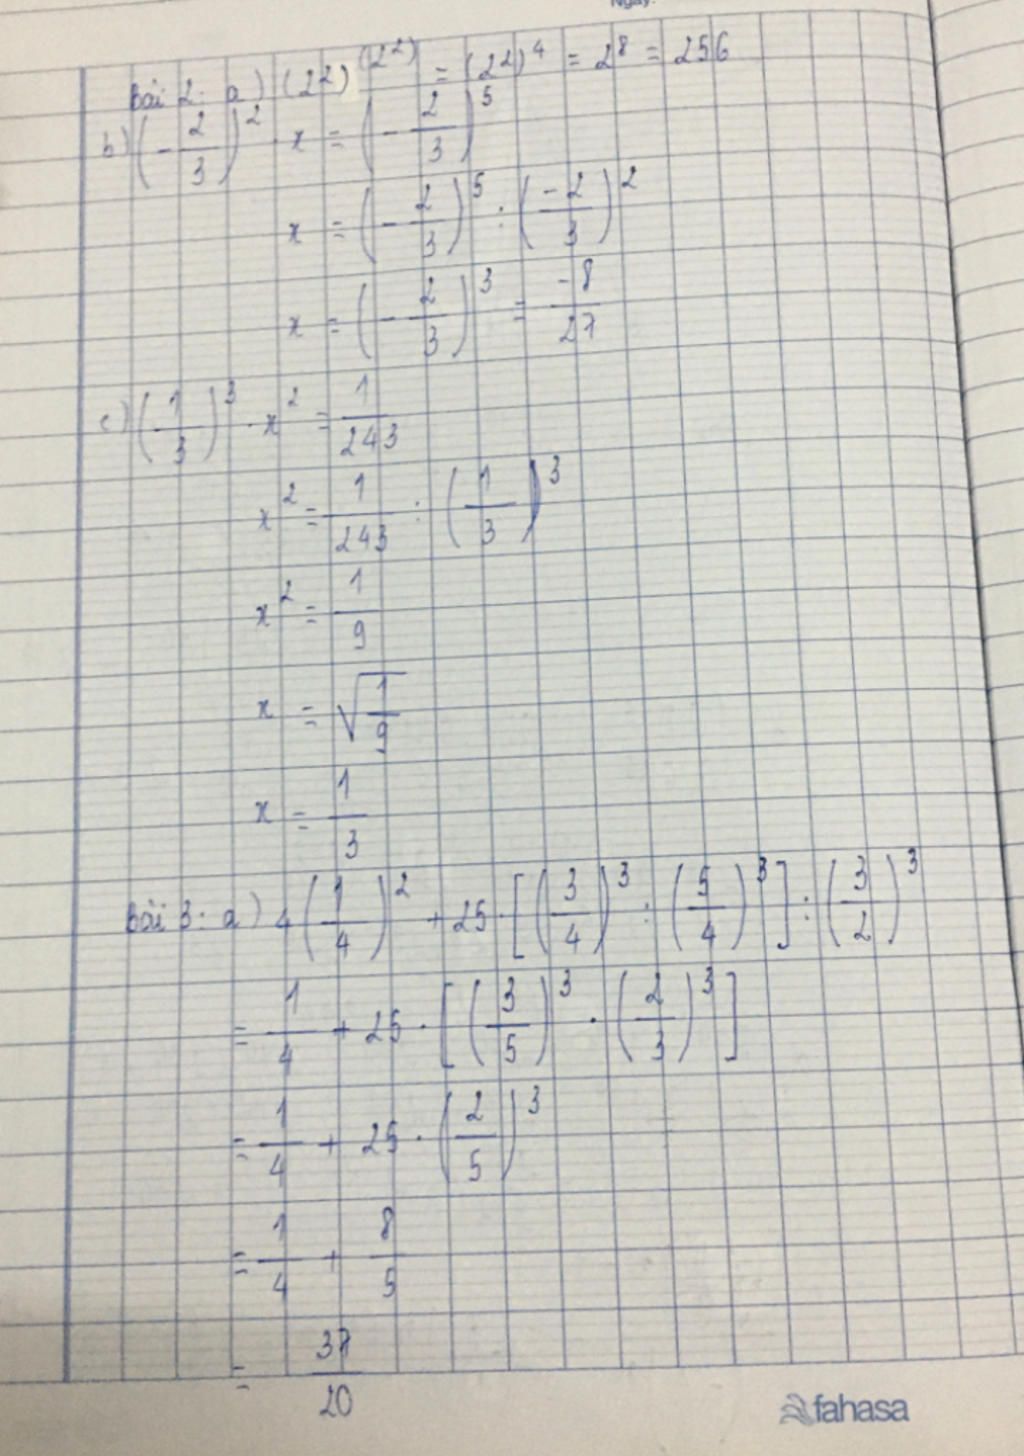 Ngày:
Bài 2: a) (2²)^(2²) = (2²)⁴ = 2⁸ = 256
b) (-2/3)² · x = (-2/3)⁵
x = (-2/3)⁵ : (-2/3)²
x = (-2/3)³ = -8/27
c) (1/3)³ · x² = 1/243
x² = 1/243 : (1/3)³
x² = 1/9
x = √(1/9)
x = 1/3
Bài 3: a) 4(1/4)² + 25 · [(3/4)³ : (5/4)³] : (3/2)³
= 1/4 + 25 · [(3/5)³ · (2/3)³]
= 1/4 + 25 · (2/5)³
= 1/4 + 8/5
= 37/20
fahasa